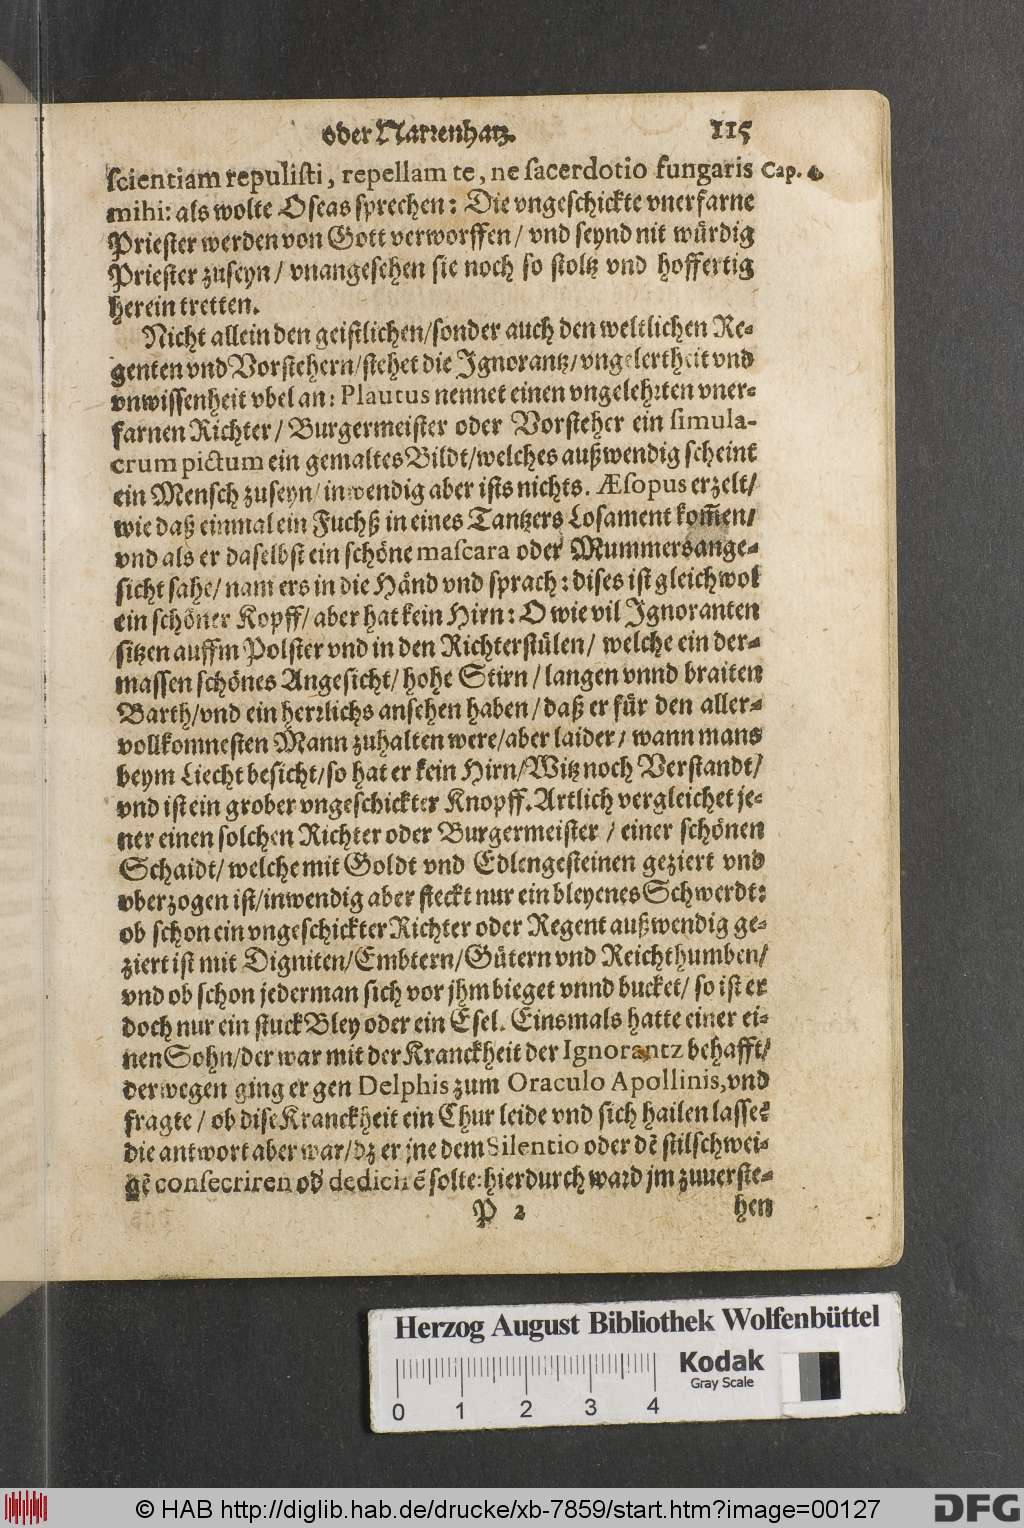 oder Narrenhatz. 115
scientiam repulisti, repellam te, ne sacerdotio fungaris Cap. 4.
mihi: als wolte Oseas sprechen: Die vngeschickte vnerfarne
Priester werden von Gott verworffen/ vnd seynd nit würdig
Priester zuseyn/ vnangesehen sie noch so stoltz vnd hoffertig
herein tretten.
Nicht allein den geistlichen/sonder auch den weltlichen Re-
genten vnd Vorstehern/stehet die Ignorantz/vngelertheit vnd
vnwissenheit vbel an: Plautus nennet einen vngelehrten vner-
farnen Richter/ Burgermeister oder Vorsteher ein simula-
crum pictum ein gemaltes Bildt/welches außwendig scheint
ein Mensch zuseyn/inwendig aber ists nichts. Æsopus erzelt/
wie daß einmal ein Fuchß in eines Tantzers Losament kom̄en/
vnd als er daselbst ein schöne mascara oder Mummersange-
sicht sahe/ nam ers in die Händ vnd sprach: dises ist gleichwol
ein schöner Kopff/ aber hat kein Hirn: O wie vil Ignoranten
sitzen auffm Polster vnd in den Richterstülen/ welche ein der-
massen schönes Angesicht/ hohe Stirn/ langen vnnd braiten
Barth/vnd ein herrlichs ansehen haben/ daß er für den aller-
vollkomnesten Mann zuhalten were/aber laider/ wann mans
beym Liecht besicht/so hat er kein Hirn/Witz noch Verstandt/
vnd ist ein grober vngeschickter Knopff. Artlich vergleichet je-
ner einen solchen Richter oder Burgermeister / einer schönen
Schaidt/ welche mit Goldt vnd Edlengesteinen geziert vnd
vberzogen ist/inwendig aber steckt nur ein bleyenes Schwerdt:
ob schon ein vngeschickter Richter oder Regent außwendig ge-
ziert ist mit Digniten/Embtern/Gütern vnd Reichthumben/
vnd ob schon jederman sich vor jhm bieget vnnd bucket/ so ist er
doch nur ein stuck Bley oder ein Esel. Einsmals hatte einer ei-
nen Sohn/der war mit der Kranckheit der Ignorantz behafft/
derwegen ging er gen Delphis zum Oraculo Apollinis,vnd
fragte/ ob dise Kranckheit ein Chur leide vnd sich hailen lasse?
die antwort aber war/dz er jne dem Silentio oder dē stilschwei-
gē consecriren od' dedicirē solte: hierdurch ward jm zuuerste-
P 2 hen
Herzog August Bibliothek Wolfenbüttel
Kodak
Gray Scale
0 1 2 3 4
© HAB http://diglib.hab.de/drucke/xb-7859/start.htm?image=00127
DFG